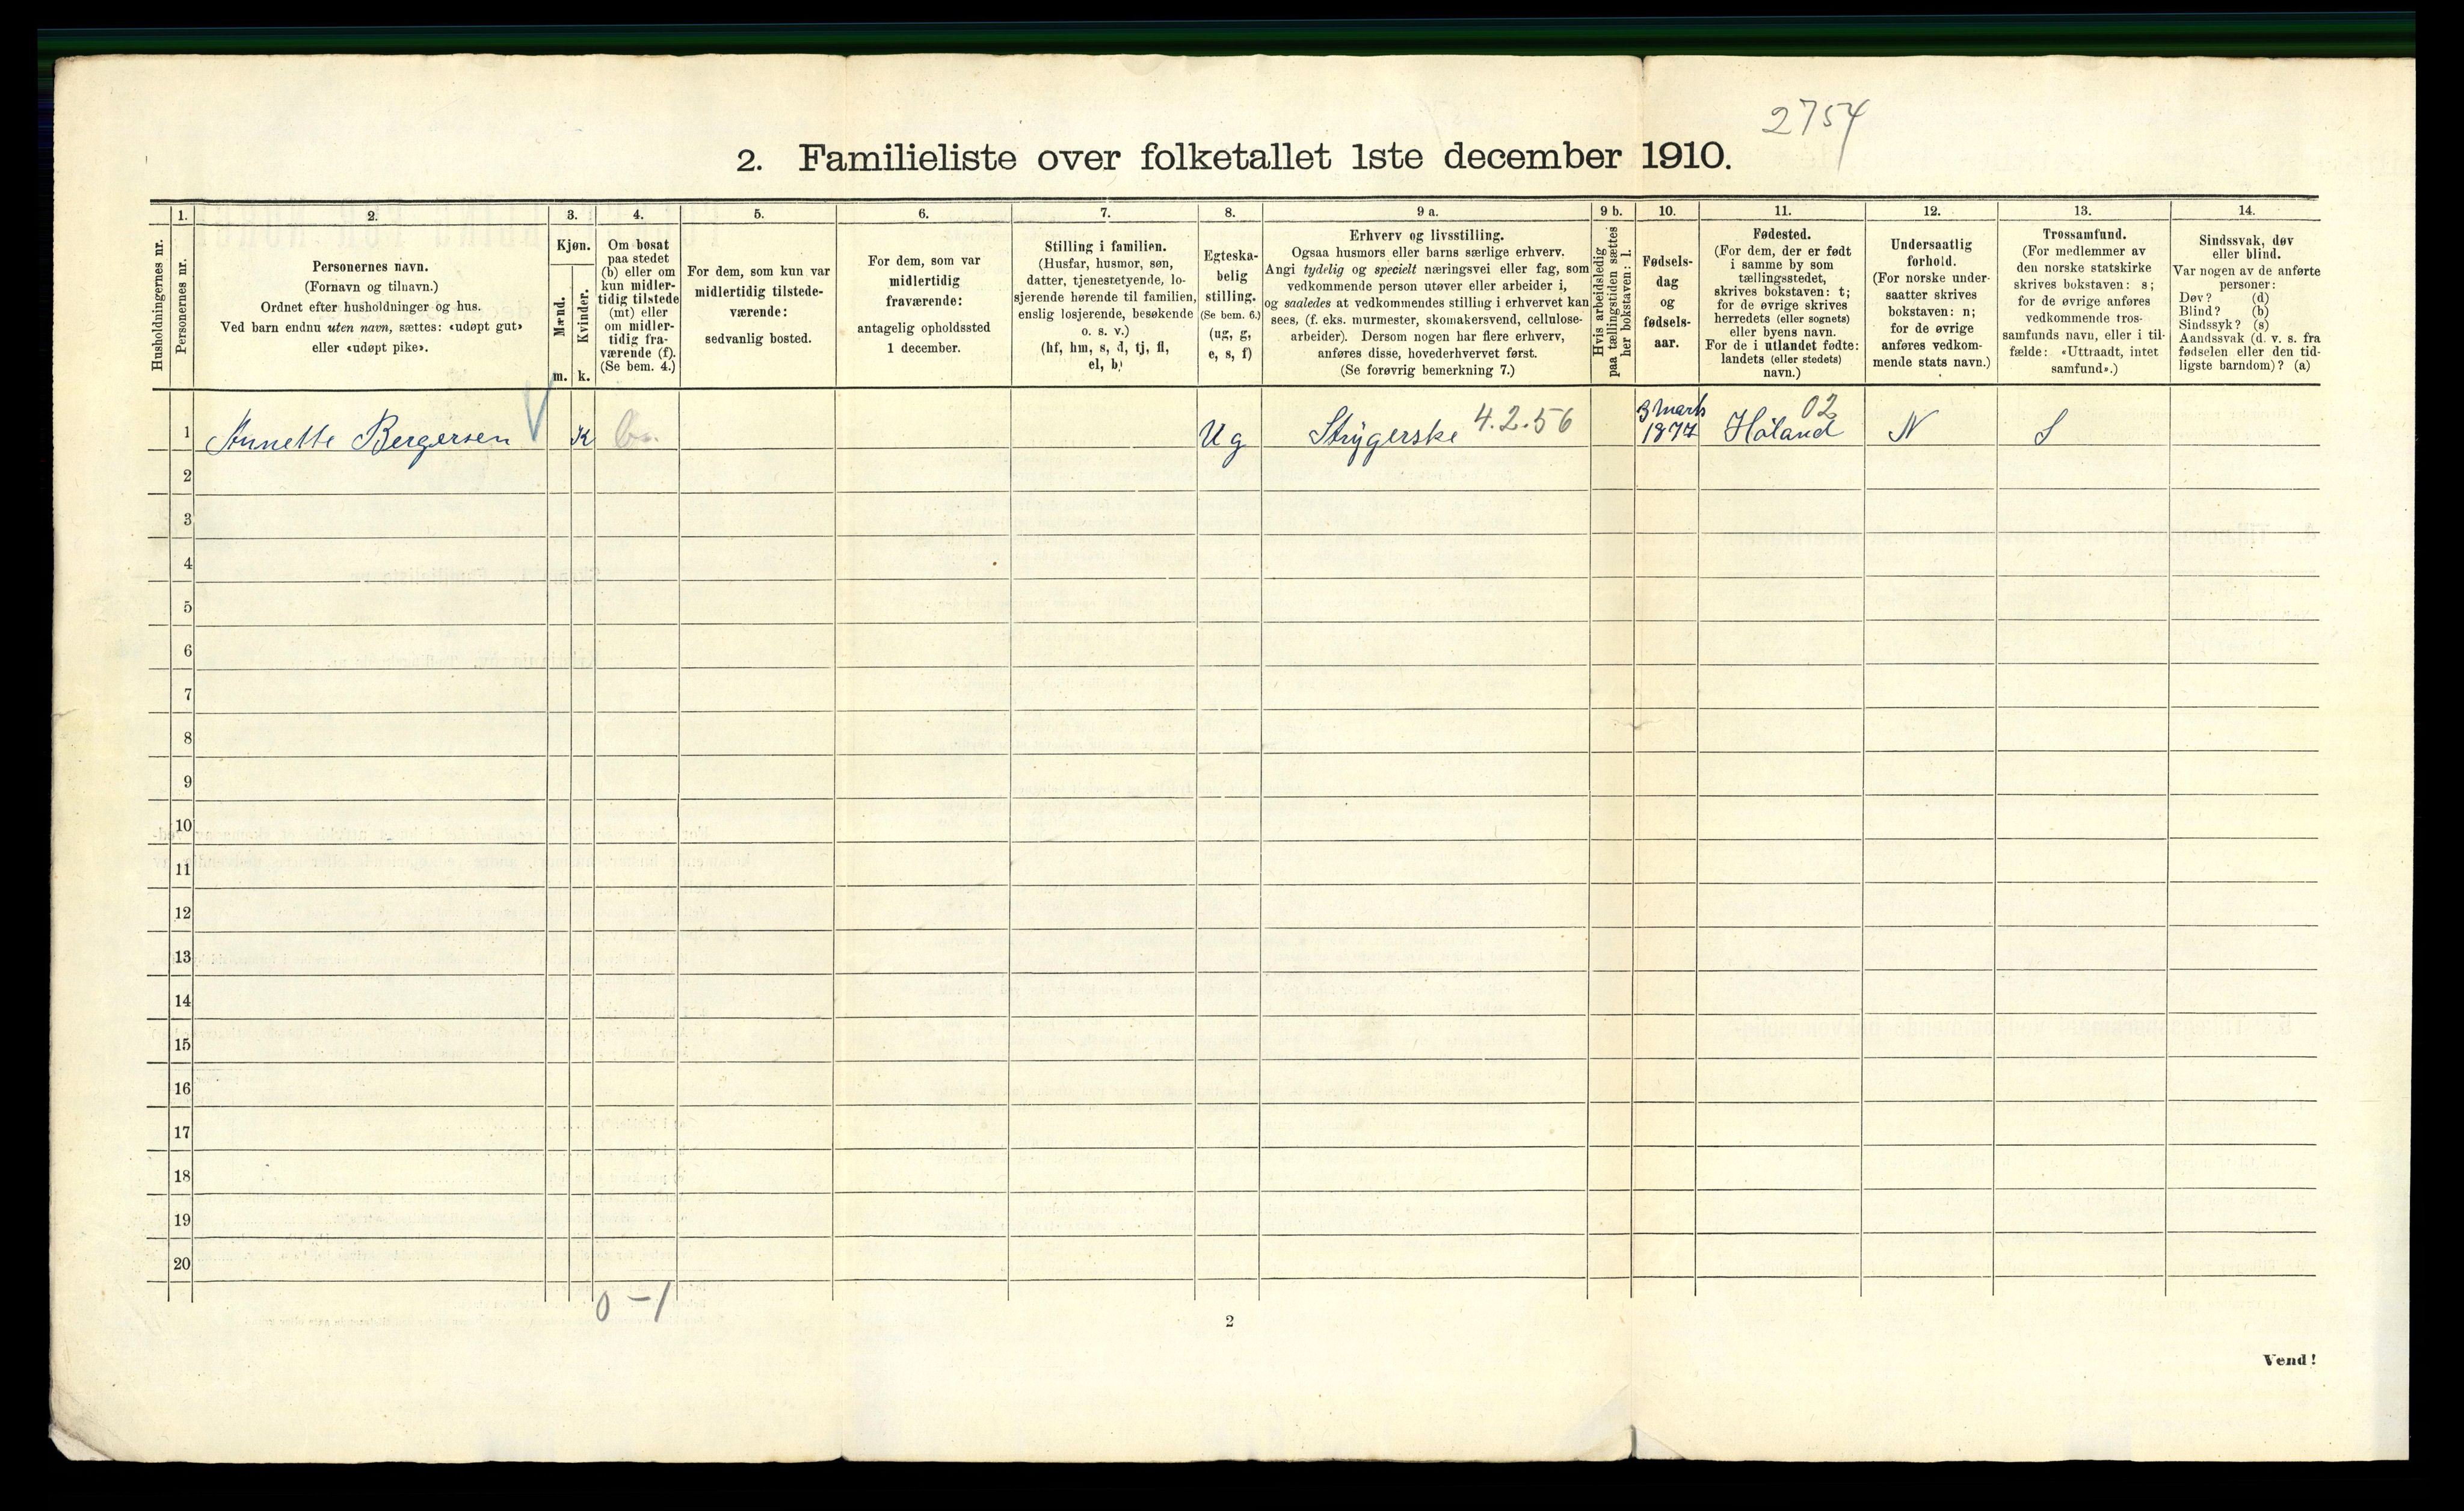 2754
2. Familieliste over folketallet 1ste december 1910.
Husholdningernes nr.
1.
Personernes nr.
2.
Personernes navn.
(Fornavn og tilnavn.)
Ordnet efter husholdninger og hus.
Ved barn endnu uten navn, sættes: «udøpt gut»
eller «udøpt pike».
3.
Kjøn.
Mænd.
m.
Kvinder.
k.
4.
Om bosat
paa stedet
(b) eller om
kun midler-
tidig tilstede
(mt) eller
om midler-
tidig fra-
værende (f).
(Se bem. 4.)
5.
For dem, som kun var
midlertidig tilstede-
værende:
sedvanlig bosted.
6.
For dem, som var
midlertidig
fraværende:
antagelig opholdssted
1 december.
7.
Stilling i familien.
(Husfar, husmor, søn,
datter, tjenestetyende, lo-
sjerende hørende til familien,
enslig losjerende, besøkende
o. s. v.)
(hf, hm, s, d, tj, fl,
el, b)
8.
Egteska-
belig
stilling.
(Se bem. 6.)
(ug, g,
e, s, f)
9 a.
Erhverv og livsstilling.
Ogsaa husmors eller barns særlige erhverv.
Angi tydelig og specielt næringsvei eller fag, som
vedkommende person utøver eller arbeider i,
og saaledes at vedkommendes stilling i erhvervet kan
sees, (f. eks. murmester, skomakersvend, cellulose-
arbeider). Dersom nogen har flere erhverv,
anføres disse, hovederhvervet først.
(Se forøvrig bemerkning 7.)
9 b.
Hvis arbeidsledig
paa tællingstiden sættes
her bokstaven: l.
10.
Fødsels-
dag
og
fødsels-
aar.
11.
Fødested.
(For dem, der er født
i samme by som
tællingsstedet,
skrives bokstaven: t;
for de øvrige skrives
herredets (eller sognets)
eller byens navn.
For de i utlandet fødte:
landets (eller stedets)
navn.)
12.
Undersaatlig
forhold.
(For norske under-
saatter skrives
bokstaven: n;
for de øvrige
anføres vedkom-
mende stats navn.)
13.
Trossamfund.
(For medlemmer av
den norske statskirke
skrives bokstaven: s;
for de øvrige anføres
vedkommende tros-
samfunds navn, eller i til-
fælde: «Uttraadt, intet
samfund».)
14.
Sindssvak, døv
eller blind.
Var nogen av de anførte
personer:
Døv? (d)
Blind? (b)
Sindssyk? (s)
Aandssvak (d. v. s. fra
fødselen eller den tid-
ligste barndom)? (a)
1 Annette Bergersen K b. Ug Strygerske 4.2.56 3 Marts 1877 Høland 02 N S
2
3
4
5
6
7
8
9
10
11
12
13
14
15
16
17
18
19
20
0 – 1
2
Vend!